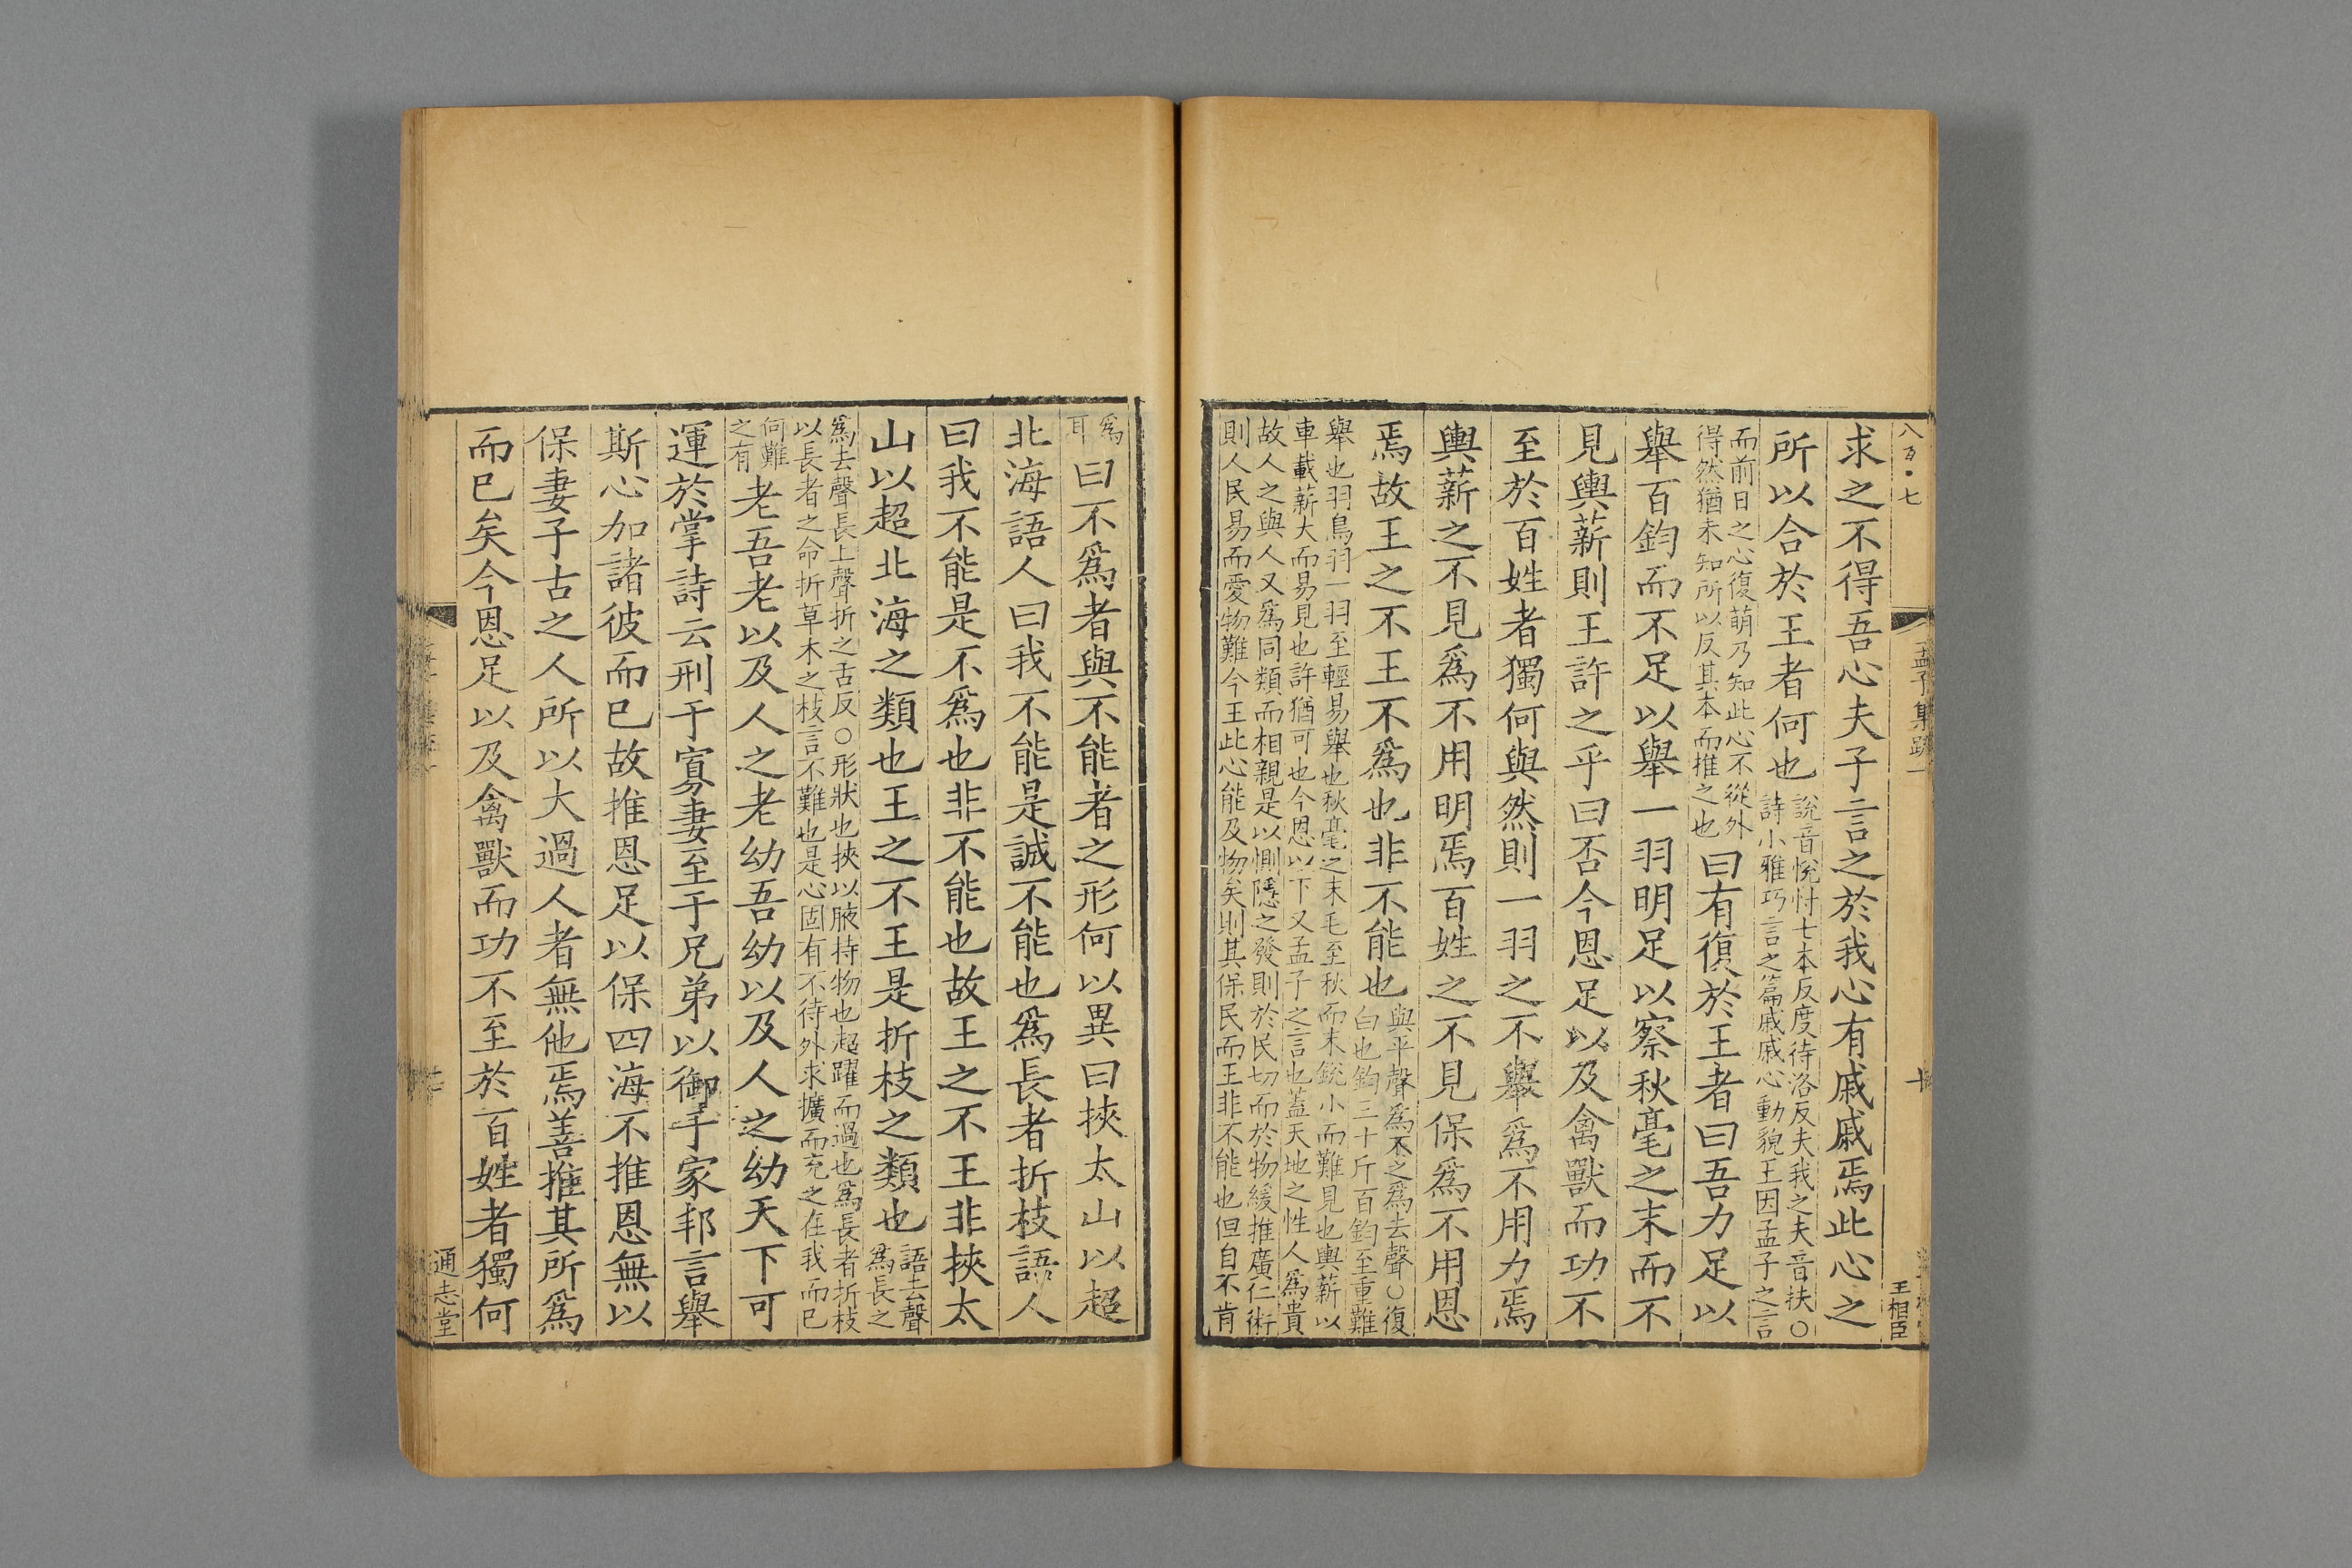 八百·七
孟子集疏一
十
王相臣
求之不得吾心夫子言之於我心有戚戚焉此心之
所以合於王者何也
說音悅忖七本反度待洛反夫我之夫音扶○
詩小雅巧言之篇戚戚心動貌王因孟子之言
而前日之心復萌乃知此心不從外
得然猶未知所以反其本而推之也
曰有復於王者曰吾力足以
舉百鈞而不足以舉一羽明足以察秋毫之末而不
見輿薪則王許之乎曰否今恩足以及禽獸而功不
至於百姓者獨何與然則一羽之不舉爲不用力焉
輿薪之不見爲不用明焉百姓之不見保爲不用恩
焉故王之不王不爲也非不能也
與平聲爲不之爲去聲○復
白也鈞三十斤百鈞至重難
舉也羽鳥羽一羽至輕易舉也秋毫之末毛至秋而末銳小而難見也輿薪以
車載薪大而易見也許猶可也今恩以下又孟子之言也蓋天地之性人爲貴
故人之與人又爲同類而相親是以惻隱之發則於民切而於物緩推廣仁術
則人民易而愛物難今王此心能及物矣則其保民而王非不能也但自不肯
爲
耳
曰不爲者與不能者之形何以異曰挾太山以超
北海語人曰我不能是誠不能也爲長者折枝語人
曰我不能是不爲也非不能也故王之不王非挾太
山以超北海之類也王之不王是折枝之類也
語去聲
爲長之
爲去聲長上聲折之舌反○形狀也挾以腋持物也超躍而過也爲長者折枝
以長者之命折草木之枝言不難也是心固有不待外求擴而充之在我而已
何難
之有
老吾老以及人之老幼吾幼以及人之幼天下可
運於掌詩云刑于寡妻至于兄弟以御于家邦言舉
斯心加諸彼而已故推恩足以保四海不推恩無以
保妻子古之人所以大過人者無他焉善推其所爲
而已矣今恩足以及禽獸而功不至於百姓者獨何
通志堂